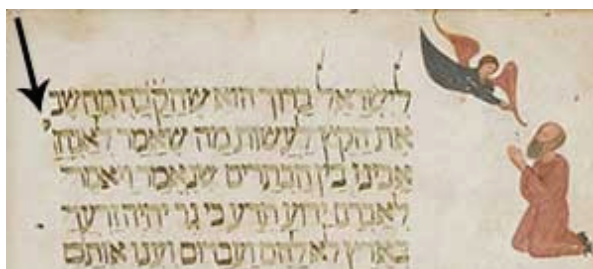 לישראל ברוך הוא שהקבה מחשב
את הקץ לעשות מה שאמר
אבינו בין הבתרים שנאמר ויאמר
לאברם ידוע תדע כי גר יהיה זרעך
בארץ לא להם ועבדום וענו אותם